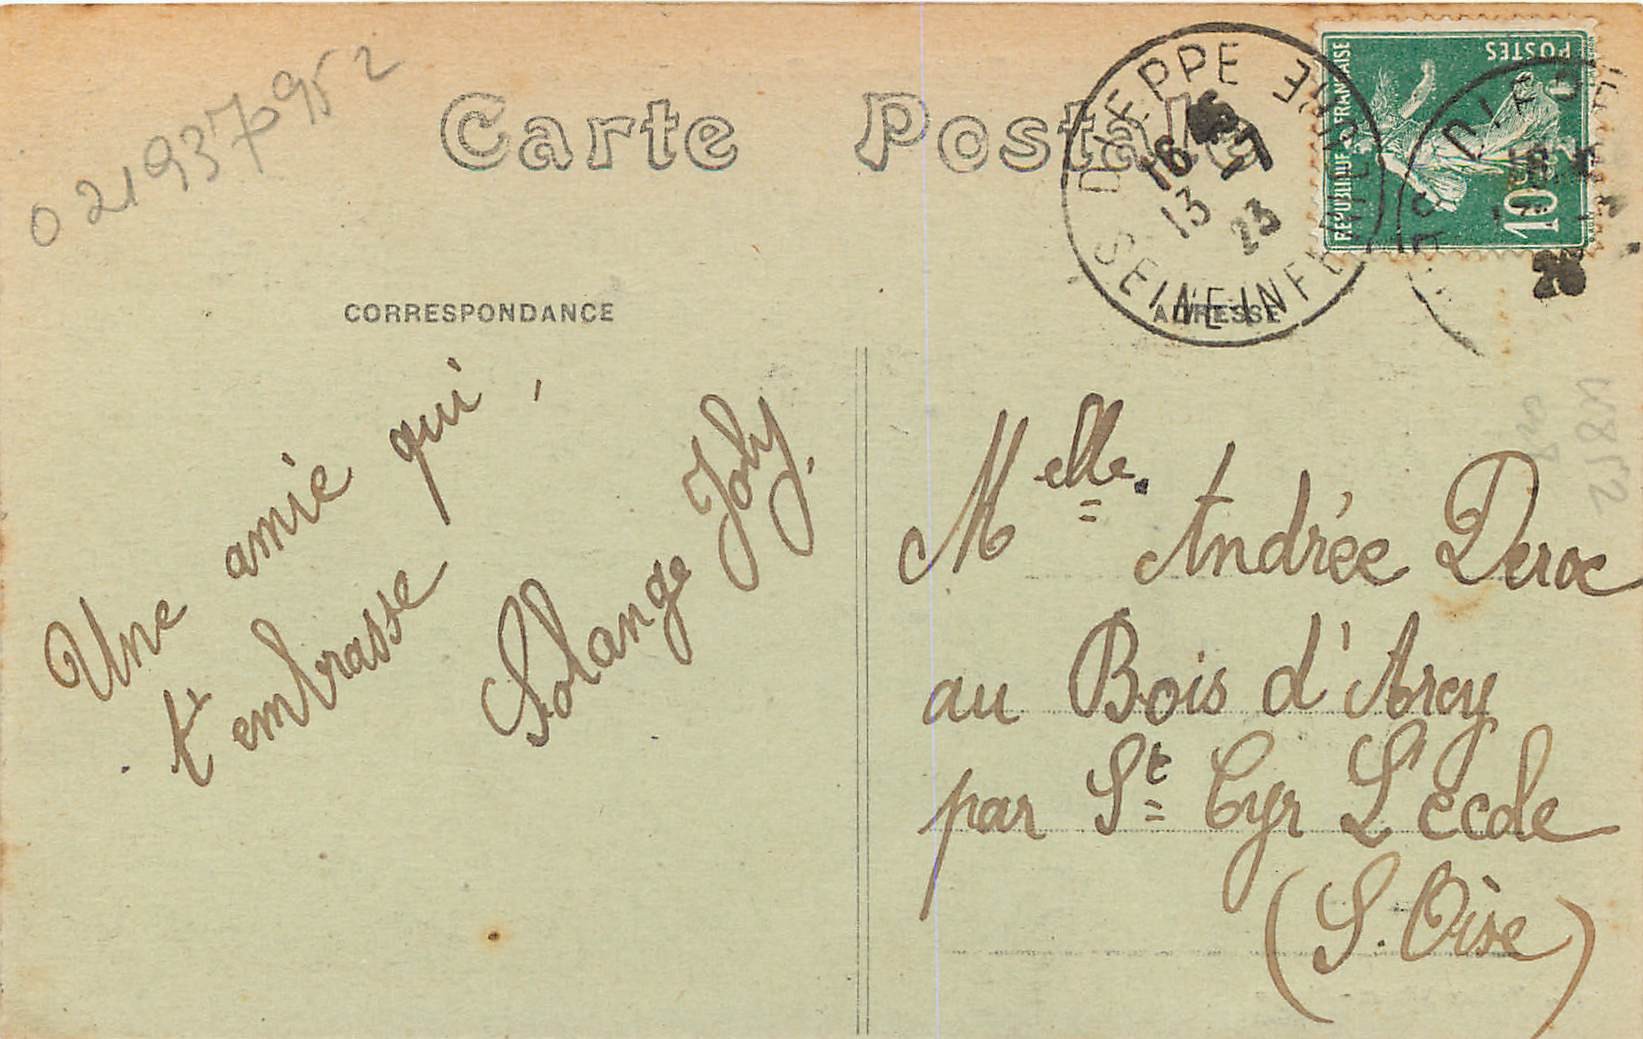 0 21937952
Carte Postale
DIEPPE
SEINE INFÉRIEURE
16 45
13 -7
23
REPUBLIQUE FRANÇAISE
POSTES
10
CORRESPONDANCE
ADRESSE
Une amie qui
t'embrasse
Solange Joly.
Melle. Andrée Deroc
au Bois d'Arcy
par St Cyr L'ecole
(S. Oise)